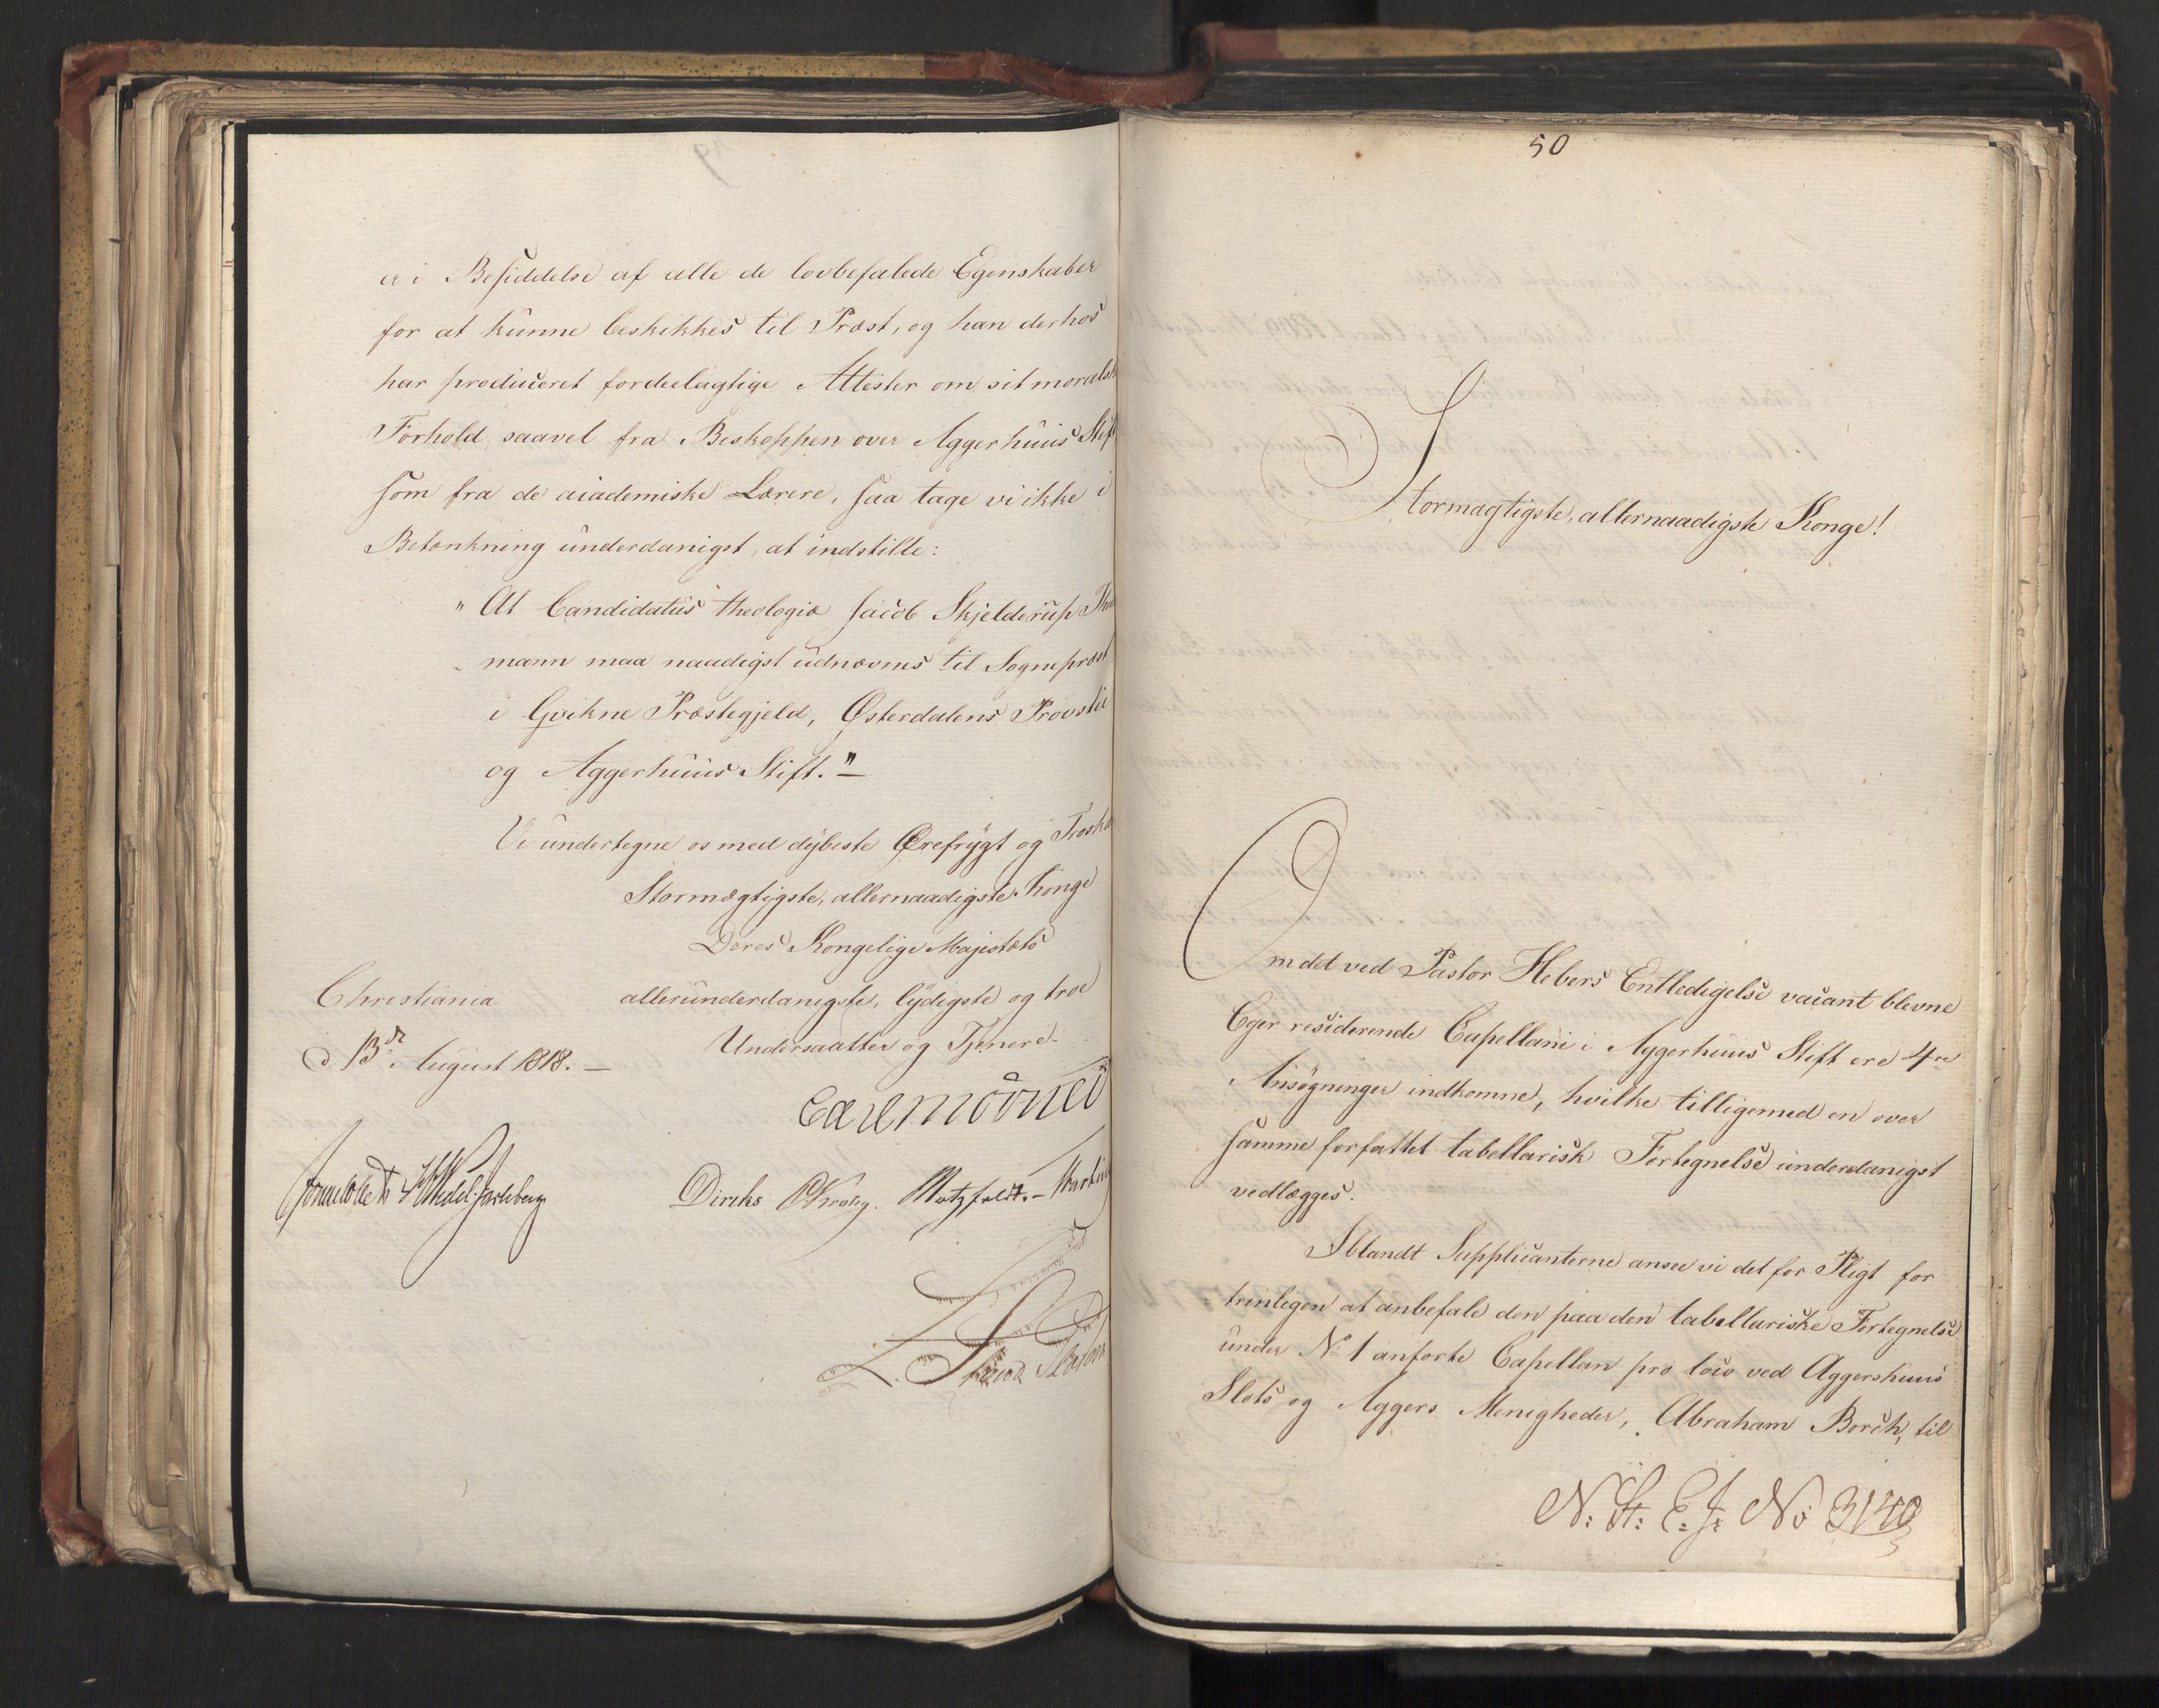 er i Besiddelse af alle de lovbefalede Egenskaber
for at kunne beskikkes til Præst, og han derhos
har produceret fordeelagtige Attester om sit moralsk
Forhold, saavel fra Biskoppen over Aggerhuus Stift
som fra de academiske Lærere, saa tage vi ikke i
Betænkning underdanigst, at indstille:
" At Candidatus theologiæ Jacob Skjelderup
mann maa naadigst udnævnes til Sognepræst
i Qvikne Præstegjeld, Østerdalens Provstie
og Aggerhuus Stift." —
Vi undertegne os med dybeste Ærefrygt og Troskab
Stormægtigste, allernaadigste Konge
Deres Kongelige Majestæts
allerunderdanigste, lydigste og troe
Undersaatter og Tjenere.
Christiania
d. 13de August 1818. —
Carl Mörner
Wedel-Jarlsberg
Diriks Krohg. Motzfeldt. —
50
Stormægtigste, allernaadigste Konge!
Om det ved Pastor Hebers Entledigelse vacant blevne
Eger residerende Capellani i Aggerhuus Stift ere 4re
Ansøgninger indkomne, hvilke tilligemed en over
samme forfattet tabellarisk Fortegnelse underdanigst
vedlægges.
Iblandt Supplicanterne ansee vi det for Pligt for
trinligen at anbefale den paa den tabellariske Fortegnelse
under No 1 anførte Capellan pro loco ved Aggershuus
Slots og Aggers Menigheder, Abraham Borch, til
N: St: E: J: No 3140